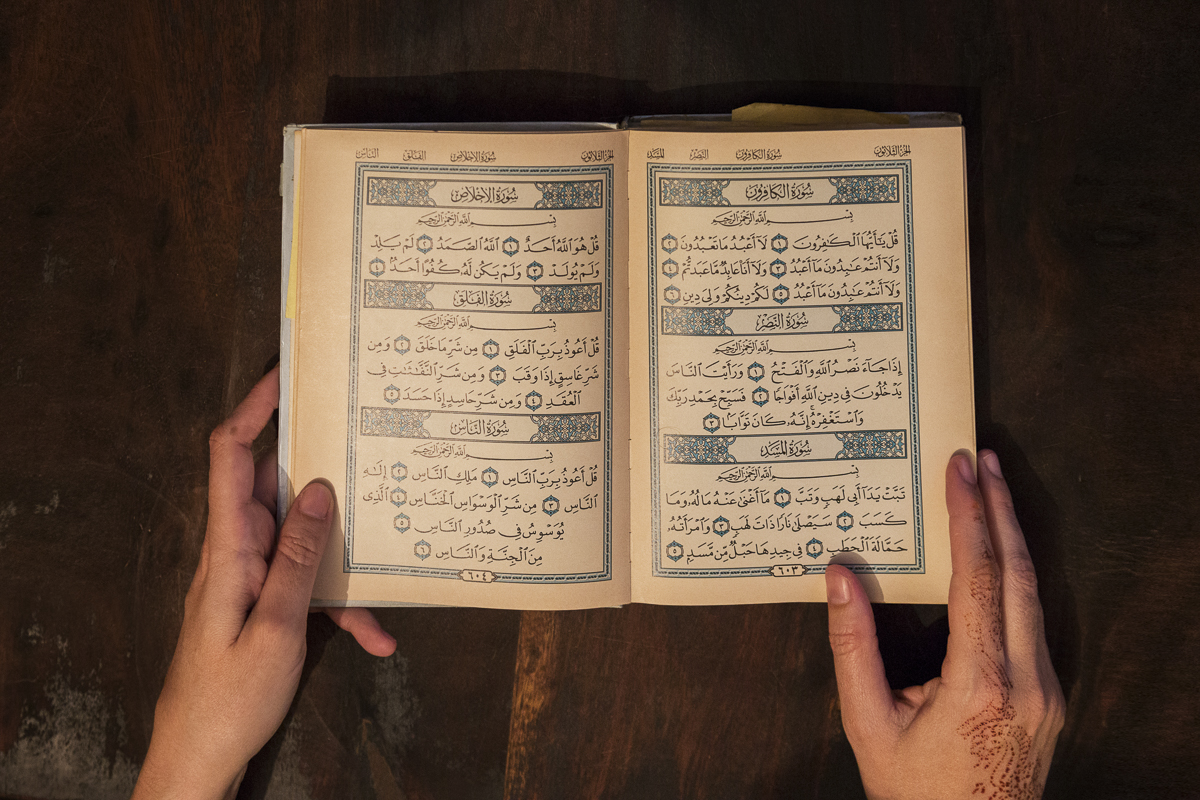 الجزء الثلاثون سورة الكافرون النصر المسد
سُورَةُ الكَافِرُونَ
بِسْمِ اللَّهِ الرَّحْمَٰنِ الرَّحِيمِ
قُلْ يَٰٓأَيُّهَا ٱلْكَٰفِرُونَ ١ لَآ أَعْبُدُ مَا تَعْبُدُونَ ٢
وَلَآ أَنتُمْ عَٰبِدُونَ مَآ أَعْبُدُ ٣ وَلَآ أَنَا۠ عَابِدٌ مَّا عَبَدتُّمْ ٤
وَلَآ أَنتُمْ عَٰبِدُونَ مَآ أَعْبُدُ ٥ لَكُمْ دِينُكُمْ وَلِىَ دِينِ ٦
سُورَةُ النَّصْرِ
بِسْمِ اللَّهِ الرَّحْمَٰنِ الرَّحِيمِ
إِذَا جَآءَ نَصْرُ ٱللَّهِ وَٱلْفَتْحُ ١ وَرَأَيْتَ ٱلنَّاسَ
يَدْخُلُونَ فِى دِينِ ٱللَّهِ أَفْوَاجًا ٢ فَسَبِّحْ بِحَمْدِ رَبِّكَ
وَٱسْتَغْفِرْهُ إِنَّهُۥ كَانَ تَوَّابًۢا ٣
سُورَةُ المَسَدِ
بِسْمِ اللَّهِ الرَّحْمَٰنِ الرَّحِيمِ
تَبَّتْ يَدَآ أَبِى لَهَبٍ وَتَبَّ ١ مَآ أَغْنَىٰ عَنْهُ مَالُهُۥ وَمَا
كَسَبَ ٢ سَيَصْلَىٰ نَارًا ذَاتَ لَهَبٍ ٣ وَٱمْرَأَتُهُۥ
حَمَّالَةَ ٱلْحَطَبِ ٤ فِى جِيدِهَا حَبْلٌ مِّن مَّسَدٍۭ ٥
٦٠٣
الجزء الثلاثون سورة الإخلاص الفلق الناس
سُورَةُ الإِخْلَاصِ
بِسْمِ اللَّهِ الرَّحْمَٰنِ الرَّحِيمِ
قُلْ هُوَ ٱللَّهُ أَحَدٌ ١ ٱللَّهُ ٱلصَّمَدُ ٢ لَمْ يَلِدْ
وَلَمْ يُولَدْ ٣ وَلَمْ يَكُن لَّهُۥ كُفُوًا أَحَدٌۢ ٤
سُورَةُ الفَلَقِ
بِسْمِ اللَّهِ الرَّحْمَٰنِ الرَّحِيمِ
قُلْ أَعُوذُ بِرَبِّ ٱلْفَلَقِ ١ مِن شَرِّ مَا خَلَقَ ٢ وَمِن
شَرِّ غَاسِقٍ إِذَا وَقَبَ ٣ وَمِن شَرِّ ٱلنَّفَّٰثَٰتِ فِى
ٱلْعُقَدِ ٤ وَمِن شَرِّ حَاسِدٍ إِذَا حَسَدَ ٥
سُورَةُ النَّاسِ
بِسْمِ اللَّهِ الرَّحْمَٰنِ الرَّحِيمِ
قُلْ أَعُوذُ بِرَبِّ ٱلنَّاسِ ١ مَلِكِ ٱلنَّاسِ ٢ إِلَٰهِ
ٱلنَّاسِ ٣ مِن شَرِّ ٱلْوَسْوَاسِ ٱلْخَنَّاسِ ٤ ٱلَّذِى
يُوَسْوِسُ فِى صُدُورِ ٱلنَّاسِ ٥
مِنَ ٱلْجِنَّةِ وَٱلنَّاسِ ٦
٦٠٤